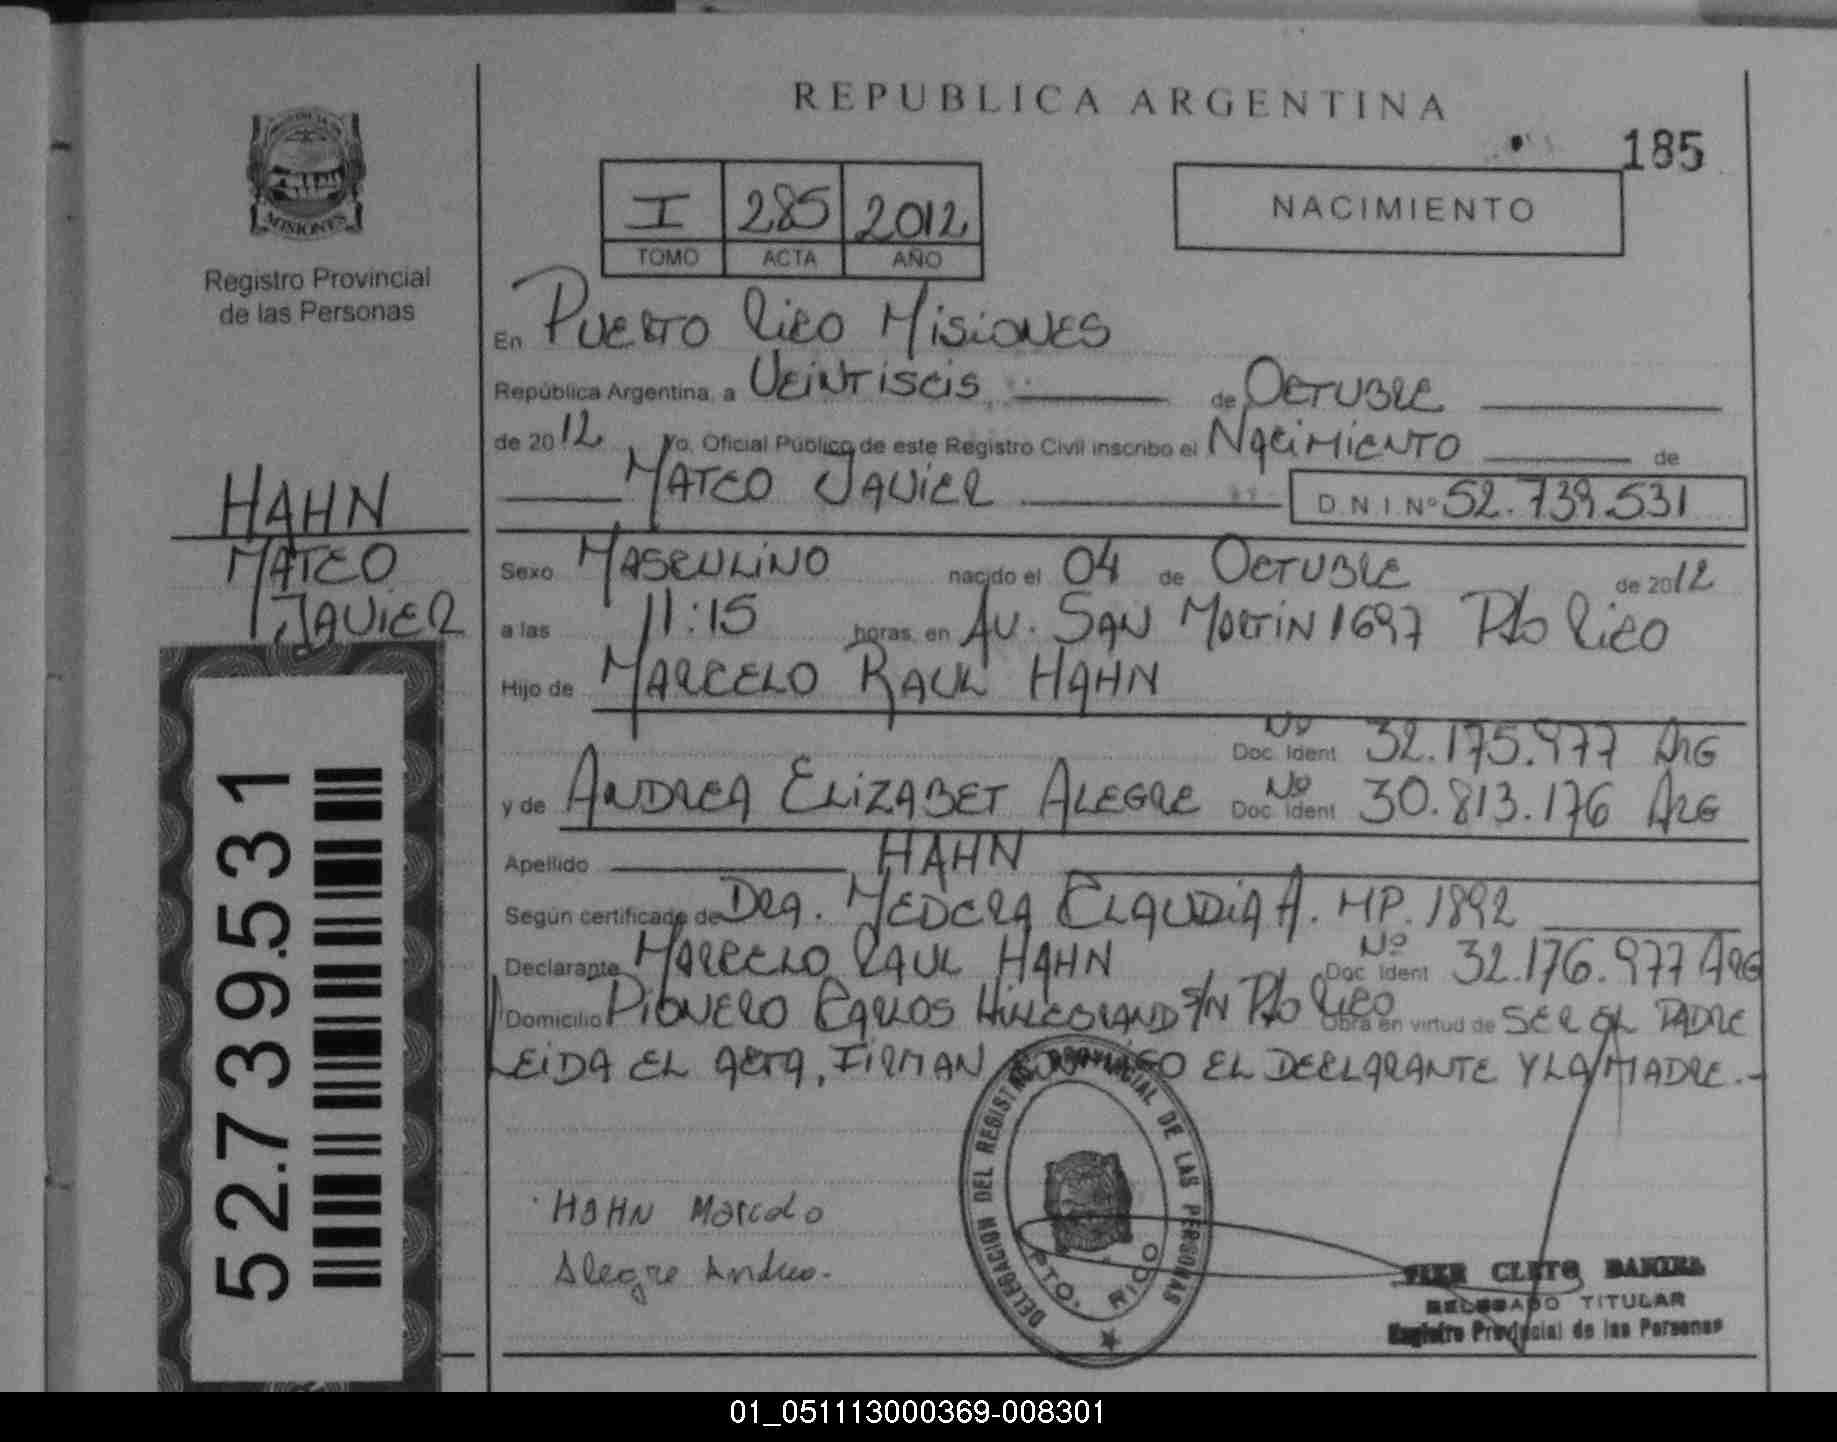 REPUBLICA ARGENTINA
185
I 285 2012
TOMO ACTA AÑO
NACIMIENTO
MISIONES
Registro Provincial
de las Personas
En PUERTO RICO MISIONES
República Argentina, a VEINTISEIS de OCTUBRE
de 2012 Yo, Oficial Público de este Registro Civil inscribo el NACIMIENTO de
MATEO JAVIER D.N.I. Nº 52.739.531
HAHN
MATEO
JAVIER
Sexo MASCULINO nacido el 04 de OCTUBRE de 2012
a las 11:15 horas, en AV. SAN MARTIN 1697 Pto RICO
Hijo de MARCELO RAUL HAHN
Doc. Ident Nº 32.175.977 ARG
y de ANDREA ELIZABET ALEGRE Doc. Ident Nº 30.813.176 ARG
Apellido HAHN
Según certificado de DRA. MEDERA CLAUDIA A. MP. 1892
Declarante MARCELO RAUL HAHN Doc. Ident Nº 32.176.977 ARG
Domicilio PIONERO CARLOS HILLEBRAND S/N Pto RICO Obra en virtud de SER EL PADRE
LEIDA EL ACTA, FIRMAN CONMIGO EL DECLARANTE Y LA MADRE.-
52.739.531
HAHN Marcelo
Alegre Andrea.
DELEGACION DEL REGISTRO PROVINCIAL DE LAS PERSONAS
PTO. RICO
CLETO DANIEL
DELEGADO TITULAR
Registro Provincial de las Personas
01_051113000369-008301